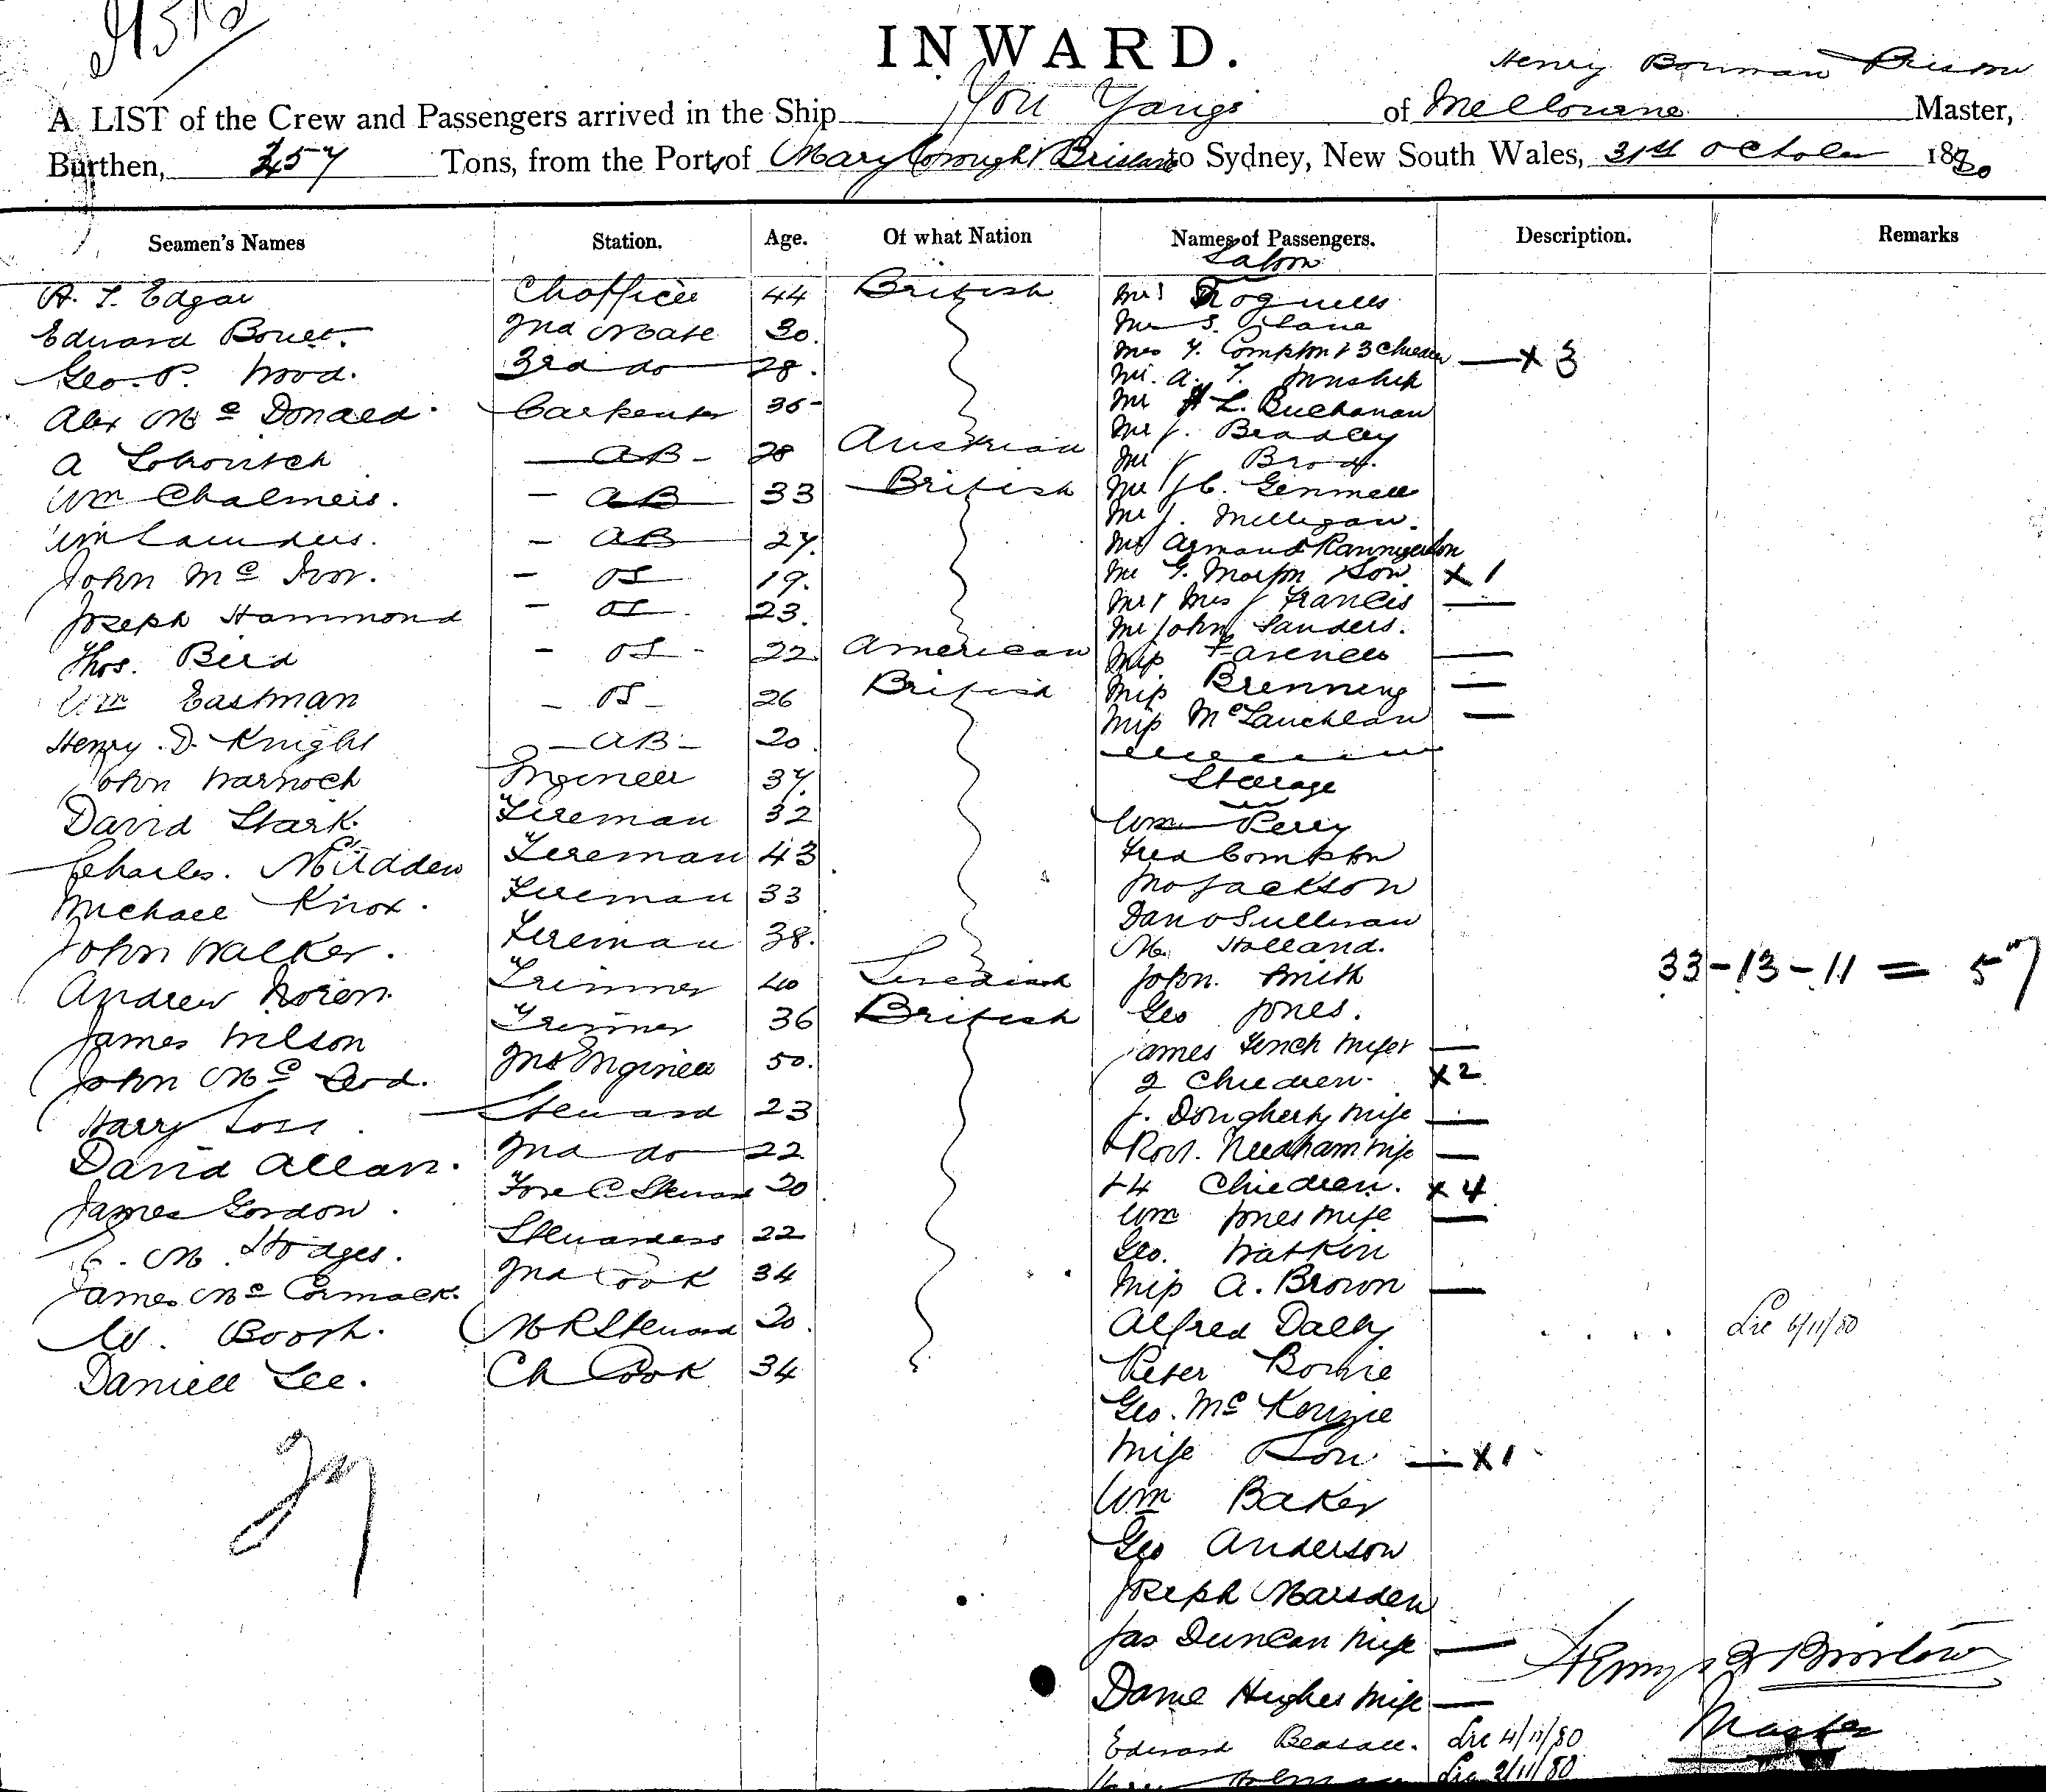 INWARD.
Henry Borman
A LIST of the Crew and Passengers arrived in the Ship You Yangs of Melbourne Master,
Burthen, 257 Tons, from the Ports of Maryborough & Brisbane to Sydney, New South Wales, 31st October 1880
Seamen's Names Station. Age. Of what Nation Names of Passengers. Description. Remarks
Saloon
Edgar Ch officer 44 British
Edward 2nd Mate 30.
Geo. P. Wood. 3rd do 28.
Alex Mc Donald. Carpenter 35
A AB 28 Austrian
Wm Chalmers. AB 33 British
Wm Saunders. AB 27.
John Mc Ivor. OS 19.
Joseph Hammond OS 23.
Thos. Bird OS 22 American
Wm Eastman OS 26 British
Henry. D. Knight AB 20
John Warnock Engineer 37.
David Stark. Fireman 32
Charles. Fireman 43
Michael Knox. Fireman 33
John Walker. Fireman 38.
Andrew Noren. Trimmer 40 Swedish
James Wilson Trimmer 36 British
John Mc Leod. 2nd Engineer 50.
Harry Steward 23
David Allan. 2nd do 22
James Gordon. Fore C Steward 20
C. M. Hodges. Stewardess 22
James Mc Cormack. 2nd Cook 34
W. Booth. M R Steward 20
Daniell Lee. Ch Cook 34
27
Mr S.
Mrs Compton & 3 Children x 3
Mr. A.
Mr L. Buchanan
Mr J. Bradley
Mr
Mr J C. Gemmell
Mr J. Milligan.
Mr Armand
Mr G. Martin & Son x 1
Mr & Mrs J Francis
Mr John Sanders.
Miss
Miss Brenning
Miss McLauchlan
Steerage
Wm Perry
Fred Compton
Jno Jackson
Dan O Sullivan
M. Holland.
John. Smith
Geo Jones.
James Finch Wife &
2 Children. x 2
J. Dougherty Wife
Robt. Needham Wife
& 4 Children. x 4
Wm Jones Wife
Geo. Watkin
Miss A. Brown
Alfred Dalby 6/11/80
Peter Bowie
Geo. Mc Kenzie
Wife & Son x 1
Wm Baker
Geo Anderson
Joseph Marsden
Jas Duncan Wife
Hughes Wife
Edward 4/11/80
2/11/80
33 - 13 - 11 = 57
Master